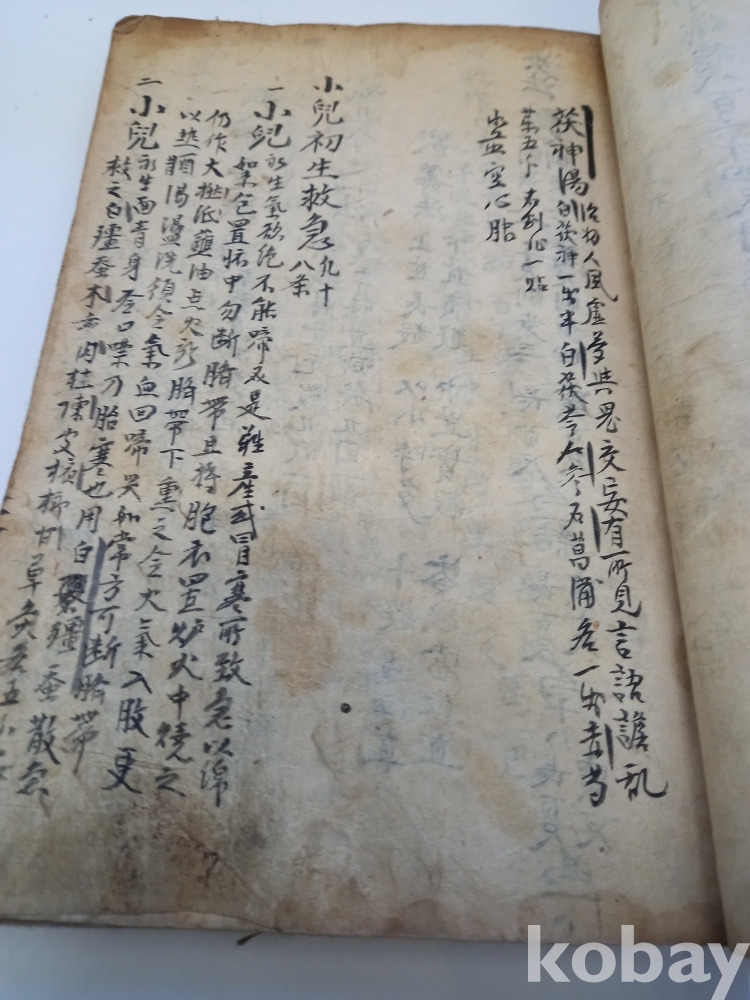 茯神湯 治 人風虛 與鬼交 妄有所見 言語譫乱
白茯神一戔半 白茯苓 人参 石菖蒲 各一戔 赤芍
薬五卜 右剉作一貼
空心
小兒初生救急 九十八条
一 小兒 初生氣欲絶不能啼 必是難産或冒寒所致 急以綿
絮包置怀中 勿断臍帶 且将胞衣置炉火中燒之
仍作大 紙 蘸油点火 於臍帶下熏之 令火氣入腹 更
以热醋湯盪洗 須令氣血回 啼哭如常 方可断臍帶
二 小兒 初生面青身 口噤 乃胎寒也 用白殭蚕散急
救之 白殭蚕 木香 肉桂 陳皮 檳榔 甘草灸 各五
kobay